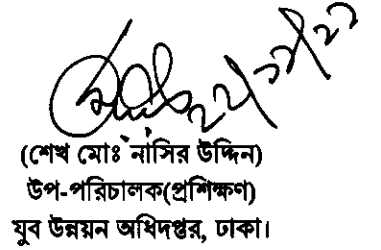 ২২/১১/২২
(শেখ মোঃ নাসির উদ্দিন)
উপ-পরিচালক(প্রশিক্ষণ)
যুব উন্নয়ন অধিদপ্তর, ঢাকা।